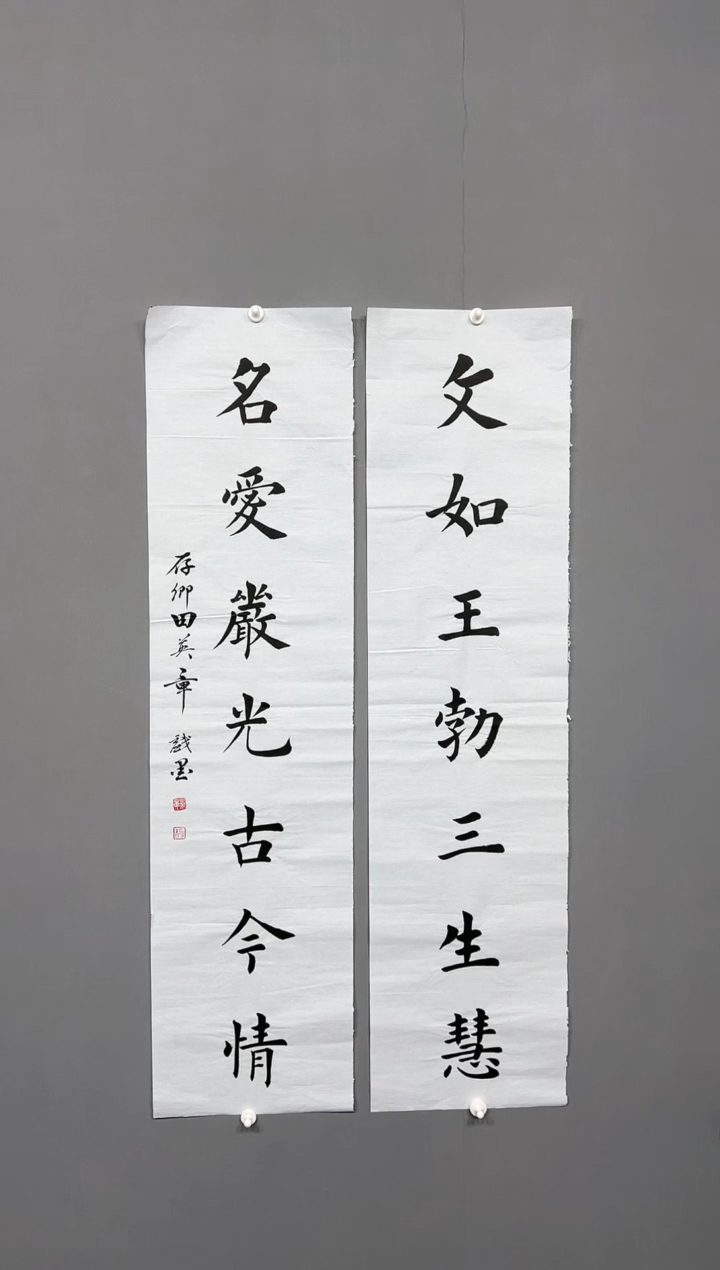 文如王勃三生慧
名愛嚴光古今情
存卿田英章 戲墨